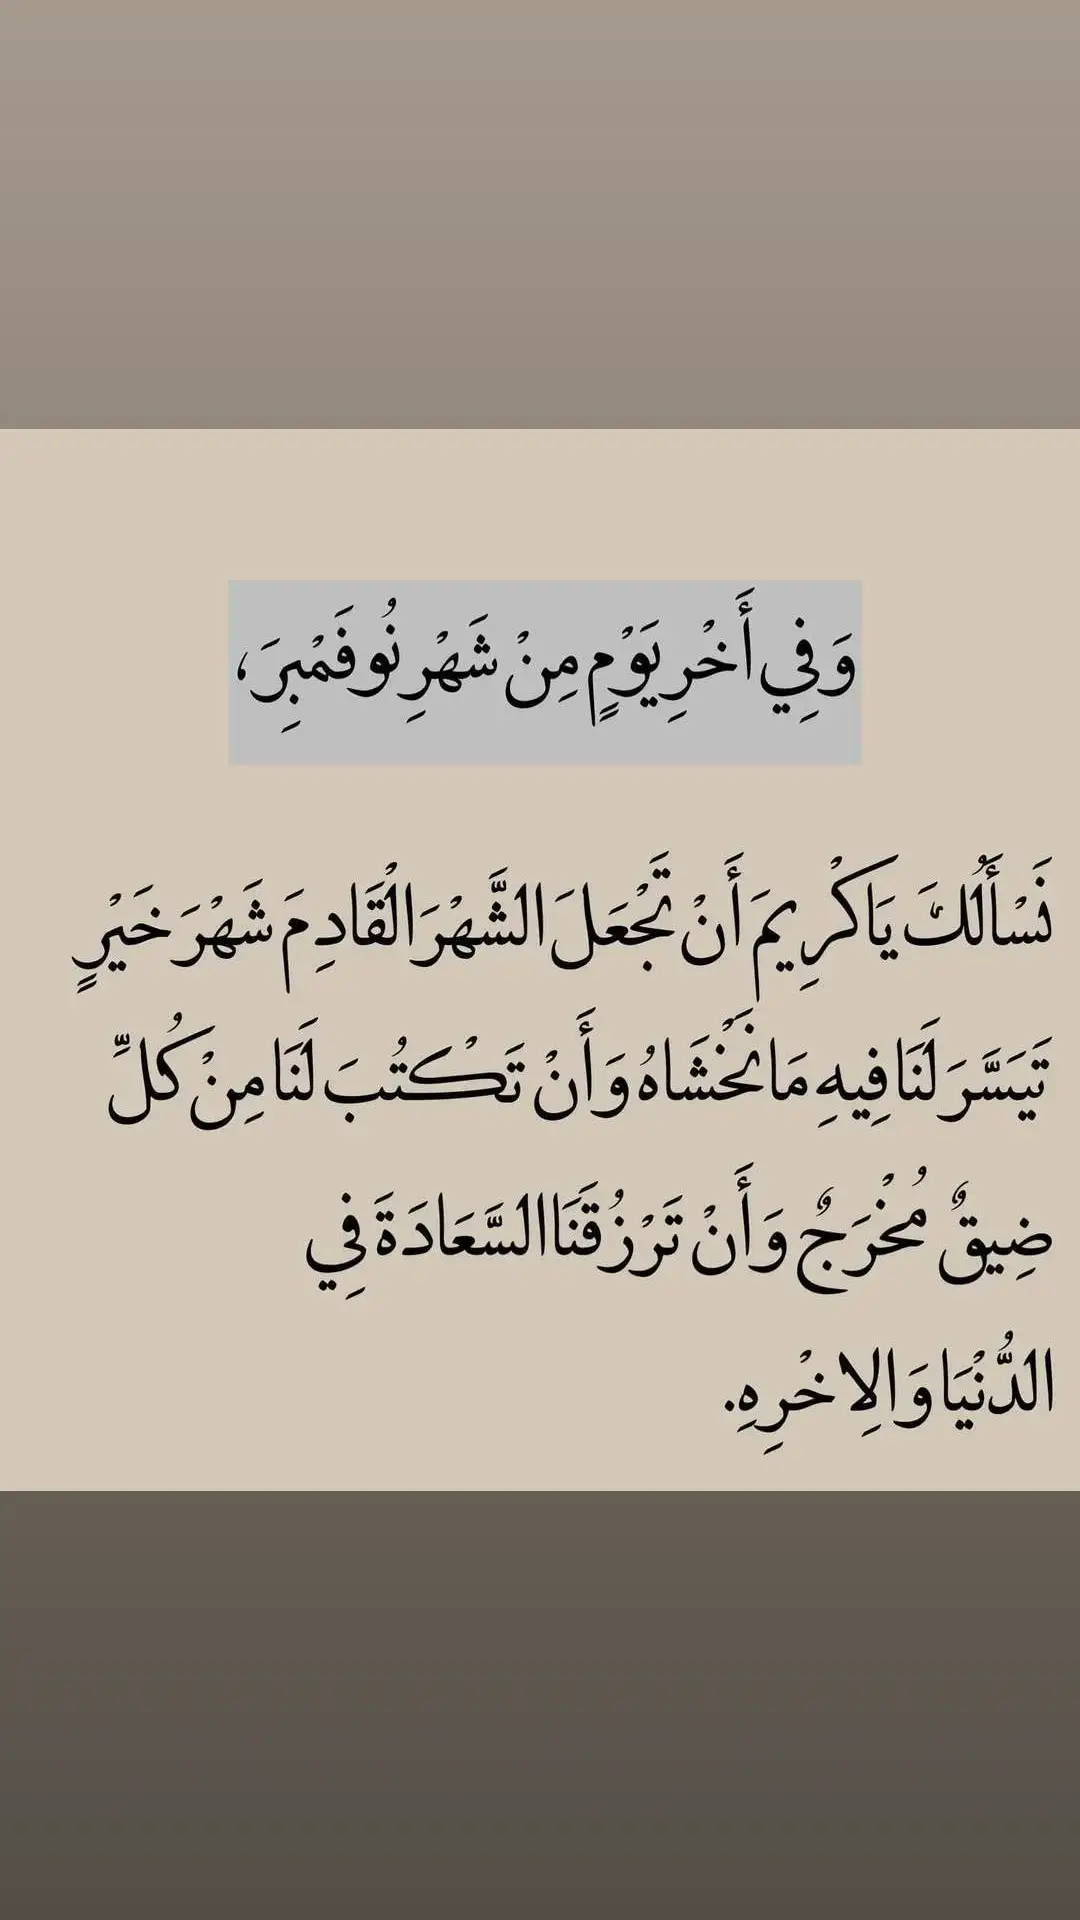 وَفِي أَخْرِ يَوْمٍ مِنْ شَهْرِ نُوفَمْبِرَ،
نَسْأَلُكَ يَا كْرِيمَ أَنْ تَجْعَلَ الشَّهْرَ الْقَادِمَ شَهْرَ خَيْرٍ
تَيَسَّرَ لَنَا فِيهِ مَا نَخْشَاهُ وَأَنْ تَكْتُبَ لَنَا مِنْ كُلِّ
ضِيقٌ مُخْرَجٌ وَأَنْ تَرْزُقَنَا السَّعَادَةَ فِي
الدُّنْيَا وَالِاخْرِهِ.